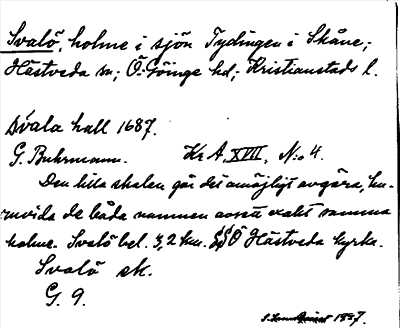 Svalö, holme i sjön Tydingen i Skåne;
Hästveda sn; Ö. Göinge hd; Kristianstads l.
Svala hall 1687.
G. Buhrmann. Kr A, XVIII, N:o 4.
Den lilla skalen gör det omöjligt avgöra, hu-
ruvida de båda namnen avse exakt samma
holme. Svalö bel. 3,2 km. SSÖ Hästveda kyrka.
Svalö ek.
G. 9.
1937.